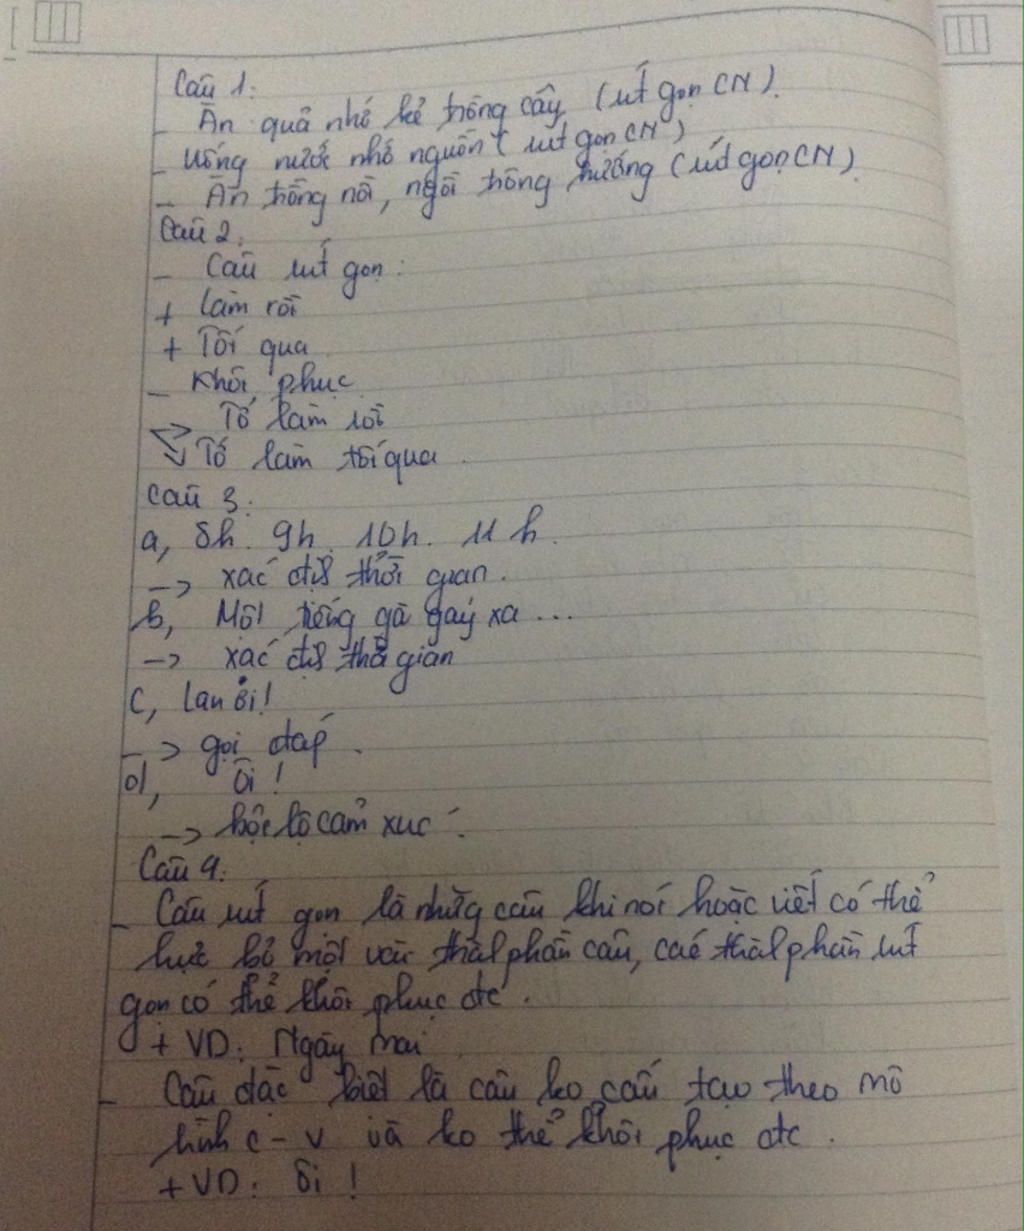 Câu 1:
- Ăn quả nhớ kẻ trồng cây (rút gọn CN).
- Uống nước nhớ nguồn (rút gọn CN)
- Ăn trông nồi, ngồi trông hướng (rút gọn CN).
Câu 2.
- Câu rút gọn:
+ Làm rồi
+ Tối qua
- Khôi phục
-> Tớ làm rồi
-> Tớ làm tối qua.
Câu 3.
a, 8h. 9h. 10h. 11h.
-> xác định thời gian.
b, Một tiếng gà gáy xa...
-> xác định thời gian
c, Lan ơi!
-> gọi đáp.
d, Ôi!
-> bộc lộ cảm xúc.
Câu 4.
- Câu rút gọn là những câu khi nói hoặc viết có thể
lược bỏ một vài thành phần câu, các thành phần rút
gọn có thể khôi phục đc.
+ VD: Ngày mai
- Câu đặc biệt là câu ko cấu tạo theo mô
hình c - v và ko thể khôi phục đc.
+ VD: Ôi!